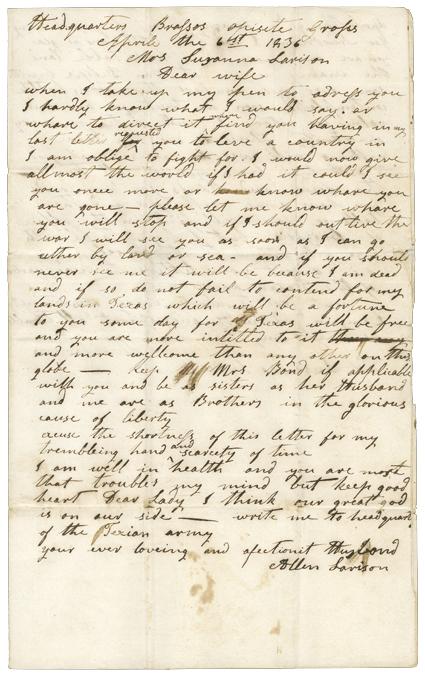 Headquarters Brassos opisite Gross
Aprile the 6st 1836
Mrs Suzanna Larison
Dear wife
when I take up my pen to adress you
I hardly know what I would say. or
whare to direct it whare find you having in my
last letter requested you to leve a country in
I am oblige to fight for. I would now give
all most the world if I had it could I see
you onece more or know whare you
are gone — please let me know whare
you will stop and if I should out live the
war I will see you as soon as I can go
uther by land or sea - and if you should
never see me it will be because I am dead
and if so do not fail to contend for my
lands in Texas which will be a fortune
to you some day for Texas will be free
and you are more intitled to it
and more wellcome than any other on this
globe — keep Mrs Bond if applicable
with you and be as sisters as her Husband
and me are as Brothers in the glorious
cause of liberty
excuse the shortness of this letter for my
trembleing hand and scarcety of time
I am well in health and you are most
that troubles my mind but keep good
heart Dear Lady I think our great god
is on our side — write me to headquart
of the Texian army
your ever loveing and afectionit Husbond
Allen Larison